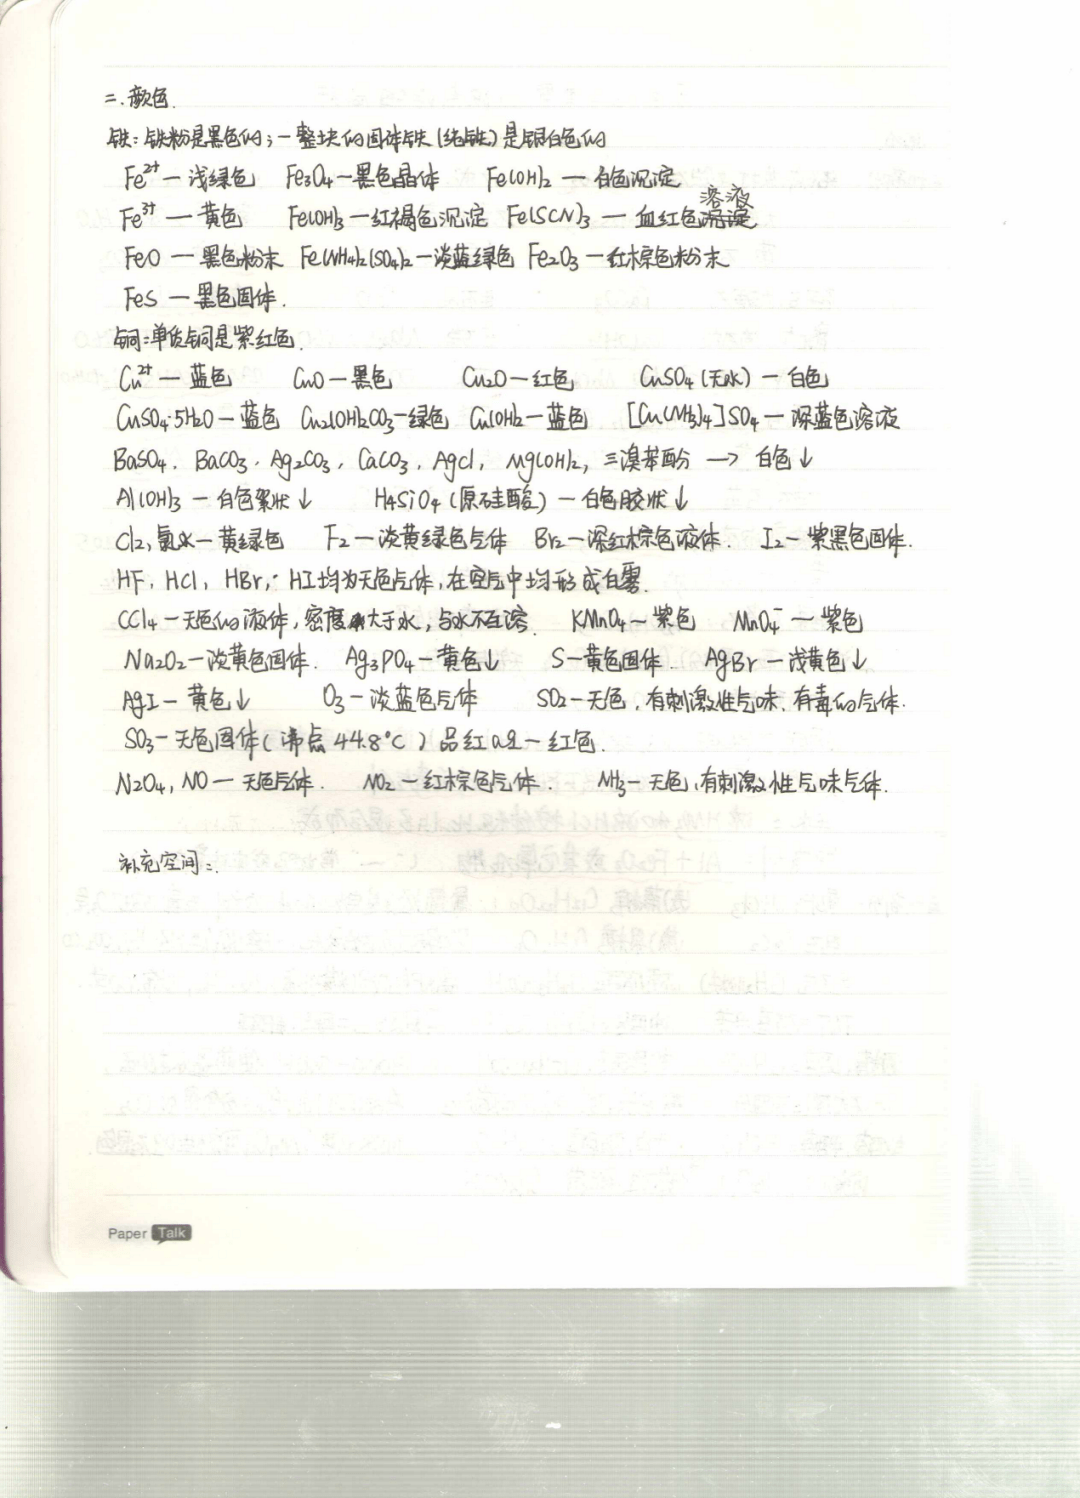 二.颜色.
铁:铁粉是黑色的;一整块的固体铁(纯铁)是银白色的
Fe²⁺—浅绿色 Fe₃O₄—黑色晶体 Fe(OH)₂—白色沉淀
Fe³⁺—黄色 Fe(OH)₃—红褐色沉淀 Fe(SCN)₃—血红色溶液
FeO—黑色粉末 Fe(NH₄)₂(SO₄)₂—淡蓝绿色 Fe₂O₃—红棕色粉末
FeS—黑色固体.
铜:单质铜是紫红色.
Cu²⁺—蓝色 CuO—黑色 Cu₂O—红色 CuSO₄(无水)—白色
CuSO₄·5H₂O—蓝色 Cu₂(OH)₂CO₃—绿色 Cu(OH)₂—蓝色 [Cu(NH₃)₄]SO₄—深蓝色溶液
BaSO₄. BaCO₃. Ag₂CO₃, CaCO₃, AgCl, Mg(OH)₂, 三溴苯酚→白色↓
Al(OH)₃—白色絮状↓ H₄SiO₄(原硅酸)—白色胶状↓
Cl₂,氯水—黄绿色 F₂—淡黄绿色气体 Br₂—深红棕色液体. I₂—紫黑色固体.
HF, HCl, HBr, HI均为无色气体,在空气中均形成白雾.
CCl₄—无色的液体,密度大于水,与水不互溶. KMnO₄—紫色 MnO₄⁻—紫色
Na₂O₂—淡黄色固体. Ag₃PO₄—黄色↓ S—黄色固体. AgBr—浅黄色↓
AgI—黄色↓ O₃—淡蓝色气体 SO₂—无色,有刺激性气味,有毒的气体.
SO₃—无色固体(沸点44.8°C) 品红—红色.
N₂O₄, NO—无色气体. NO₂—红棕色气体. NH₃—无色,有刺激性气味气体.
补充空间:
Paper Talk